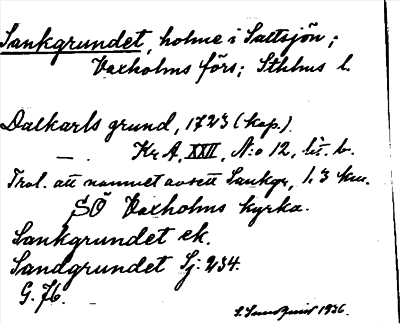 Sankgrundet, holme i Saltsjön;
Vaxholms förs; Sthlms l.
Dalkarls grund, 1723 (kop.)
— Kr A, XXII, N:o 12, lit. b.
Trol. att namnet avsett Sankgr, 1,3 km.
SÖ Vaxholms kyrka.
Sankgrundet ek.
Sandgrundet Sj: 234.
G. 76.
1936.